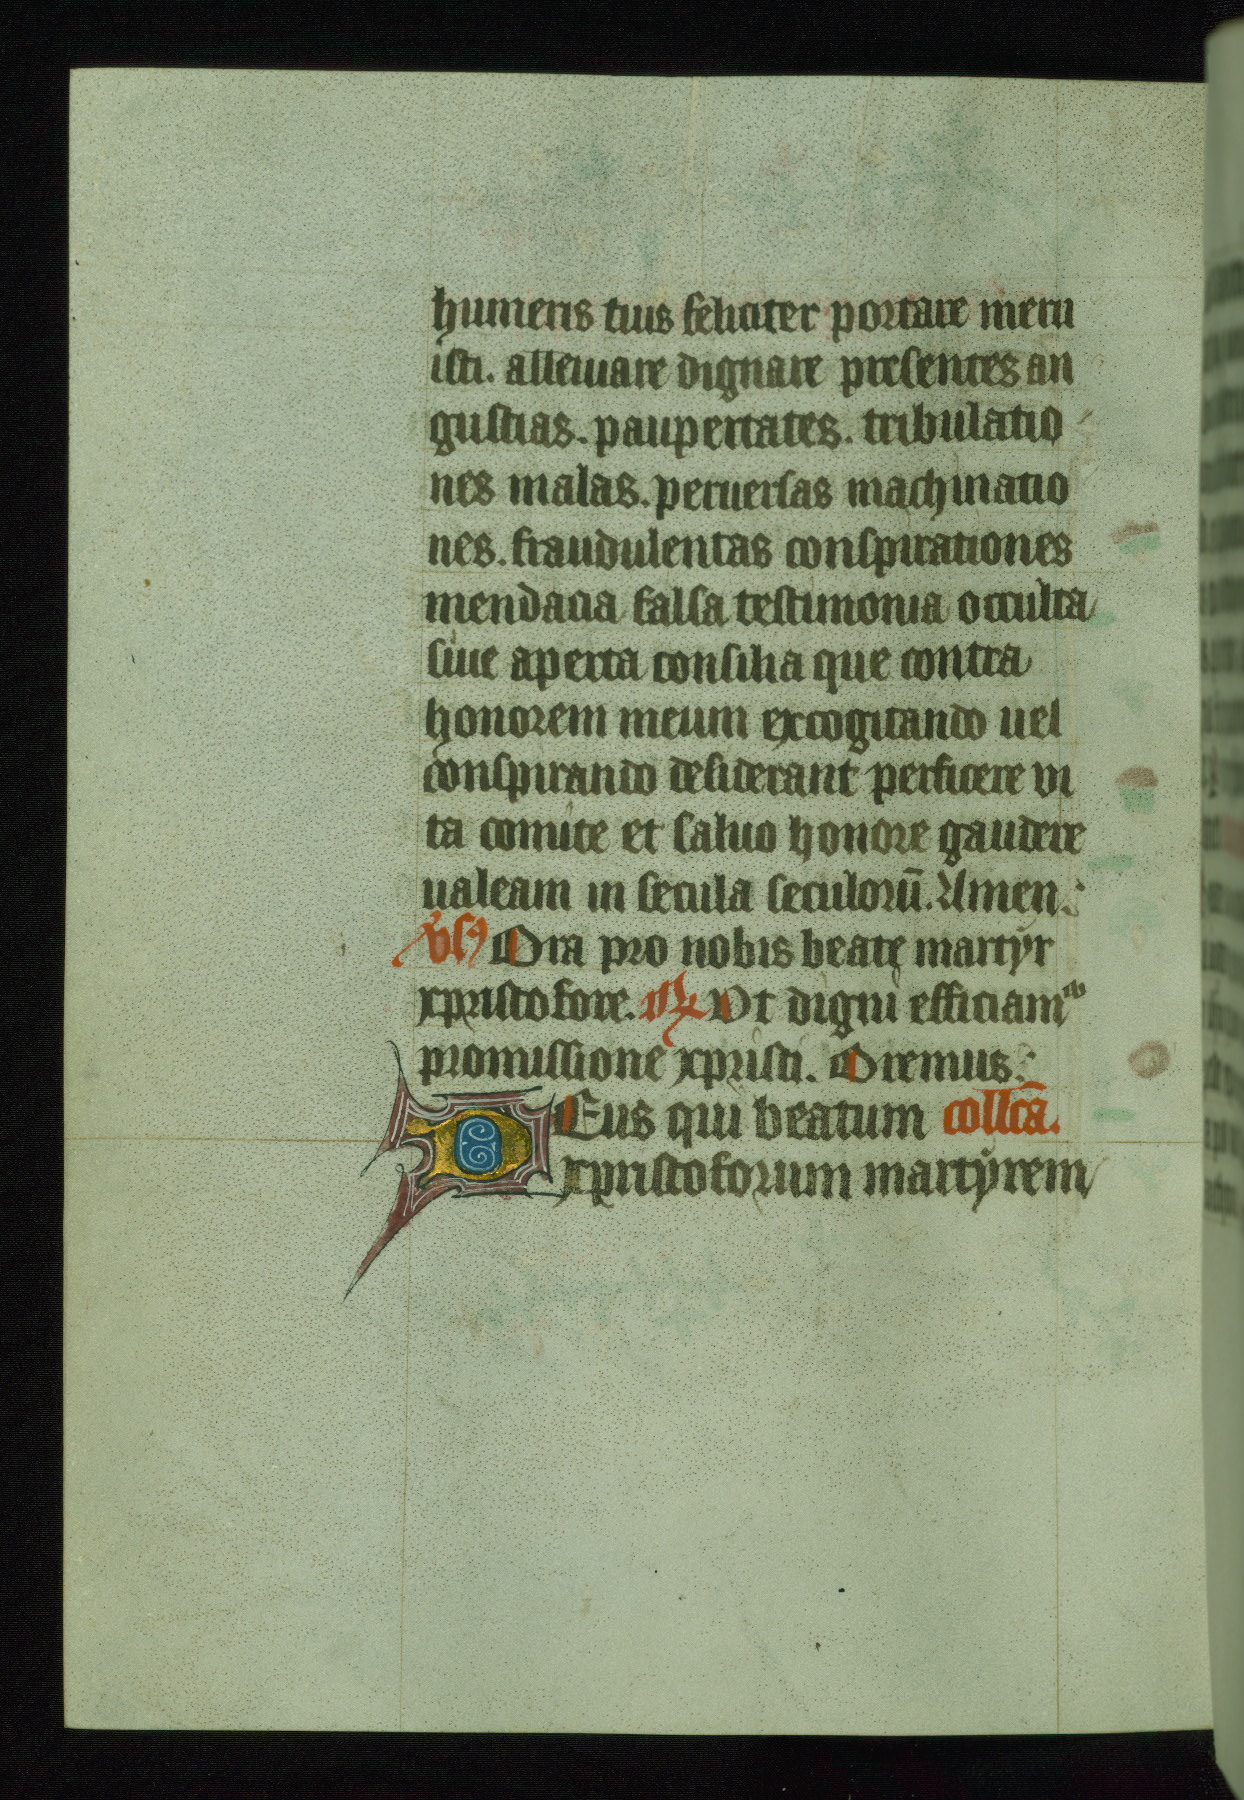 humeris tuis feliciter portare meru
isti. alleuuare dignare presentes an
gustias. paupertates. tribulatio
nes malas. peruersas machinatio
nes. fraudulentas conspirationes
mendacia falsa testimonia occulta
siue aperta consilia que contra
honorem meum excogitando uel
conspirando desiderant perficere vi
ta comite et saluo honore gaudere
ualeam in secula seculorū. Amen.
vs Ora pro nobis beate martyr
xpristofore. R Vt digni efficiam
promissione xpristi. Oremus.
DEus qui beatum collcā.
xpristoforum martyrem